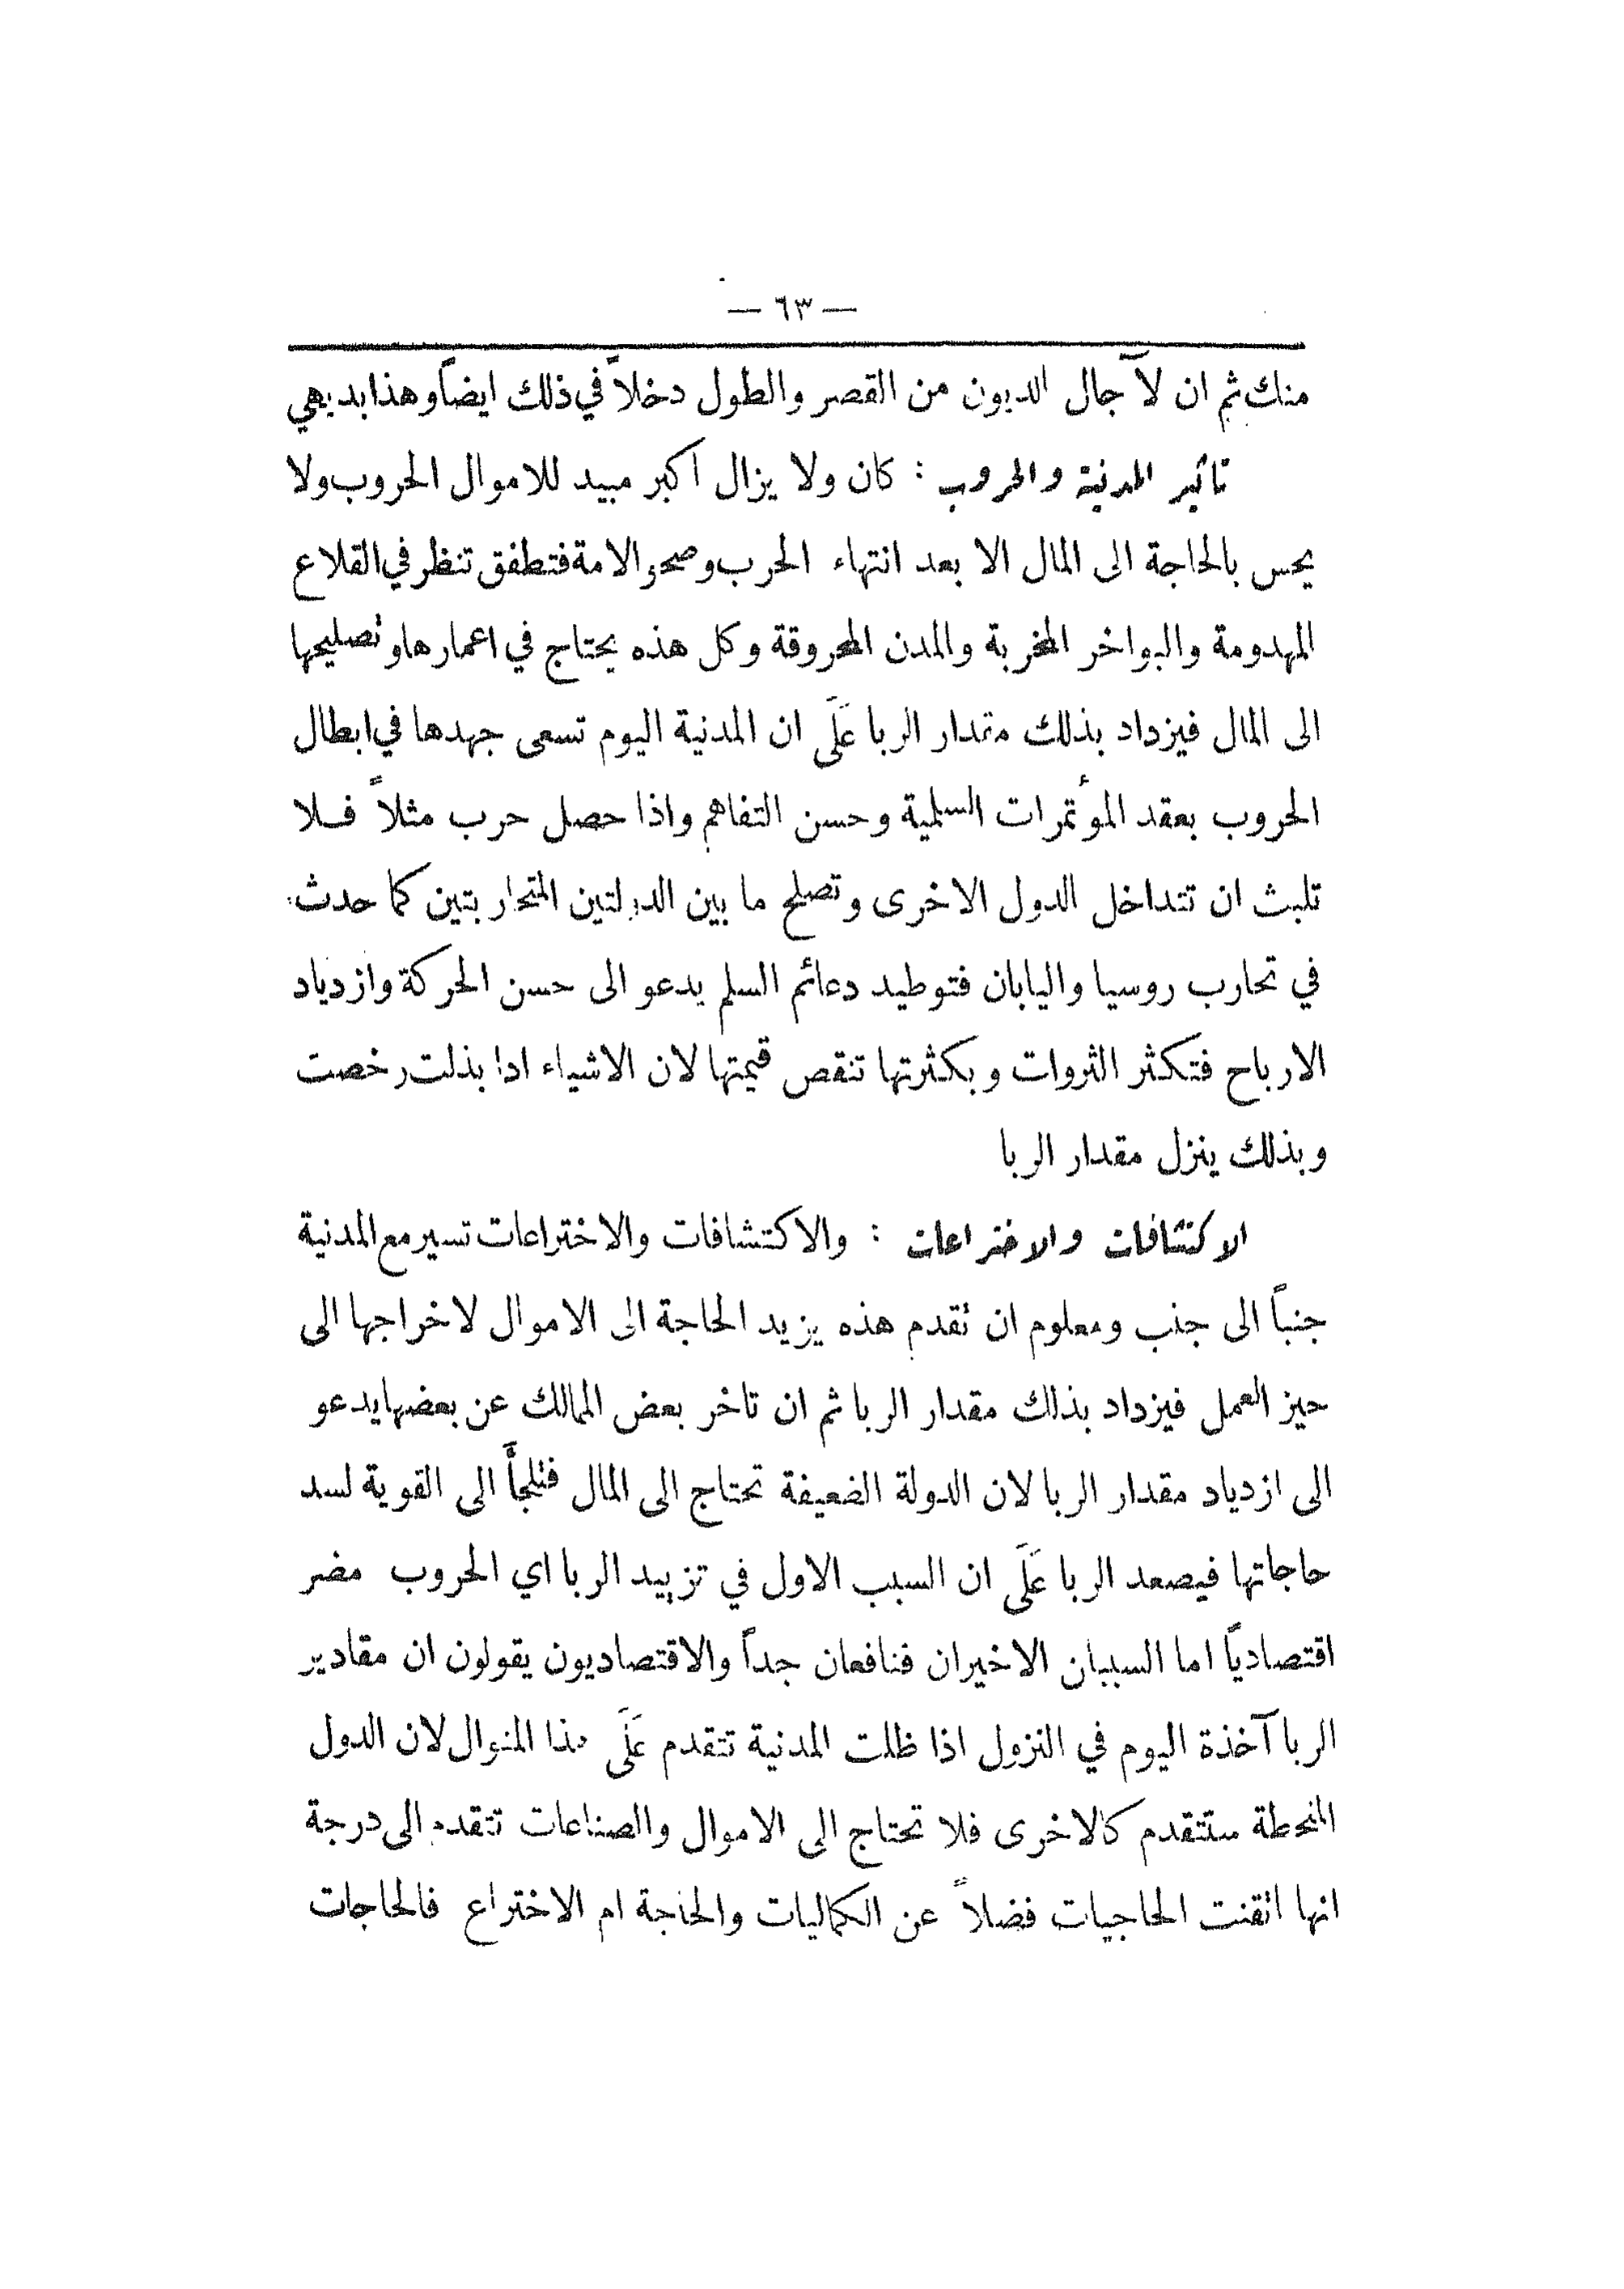 — ٦٣ —
منك ثم ان لآجال الديون من القصر والطول دخلاً في ذلك ايضاً وهذا بديهي
تأثير المدنية والحروب : كان ولا يزال اكبر مبيد للاموال الحروب ولا
يحس بالحاجة الى المال الا بعد انتهاء الحرب وصحو الامة فتطفق تنظر في القلاع
المهدومة والبواخر المخربة والمدن المحروقة وكل هذه يحتاج في اعمارها وتصليحها
الى المال فيزداد بذلك مقدار الربا عَلَى ان المدنية اليوم تسعى جهدها في ابطال
الحروب بعقد المؤتمرات السلمية وحسن التفاهم واذا حصل حرب مثلاً فلا
تلبث ان تتداخل الدول الاخرى وتصلح ما بين الدولتين المتحاربتين كما حدث
في تحارب روسيا واليابان فتوطيد دعائم السلم يدعو الى حسن الحركة وازدياد
الارباح فتكثر الثروات وبكثرتها تنقص قيمتها لان الاشياء اذا بذلت رخصت
وبذلك ينزل مقدار الربا
الاكتشافات والاختراعات : والاكتشافات والاختراعات تسير مع المدنية
جنباً الى جنب ومعلوم ان تقدم هذه يزيد الحاجة الى الاموال لاخراجها الى
حيز العمل فيزداد بذلك مقدار الربا ثم ان تاخر بعض الممالك عن بعضها يدعو
الى ازدياد مقدار الربا لان الدولة الضعيفة تحتاج الى المال فتلجأ الى القوية لسد
حاجاتها فيصعد الربا عَلَى ان السبب الاول في تزييد الربا اي الحروب مضر
اقتصادياً اما السببان الاخيران فنافعان جداً والاقتصاديون يقولون ان مقادير
الربا آخذة اليوم في النزول اذا ظلت المدنية تتقدم عَلَى هذا المنوال لان الدول
المنحطة ستتقدم كالاخرى فلا تحتاج الى الاموال والصناعات تتقدم الى درجة
انها اتقنت الحاجيات فضلاً عن الكماليات والحاجة ام الاختراع فالحاجات